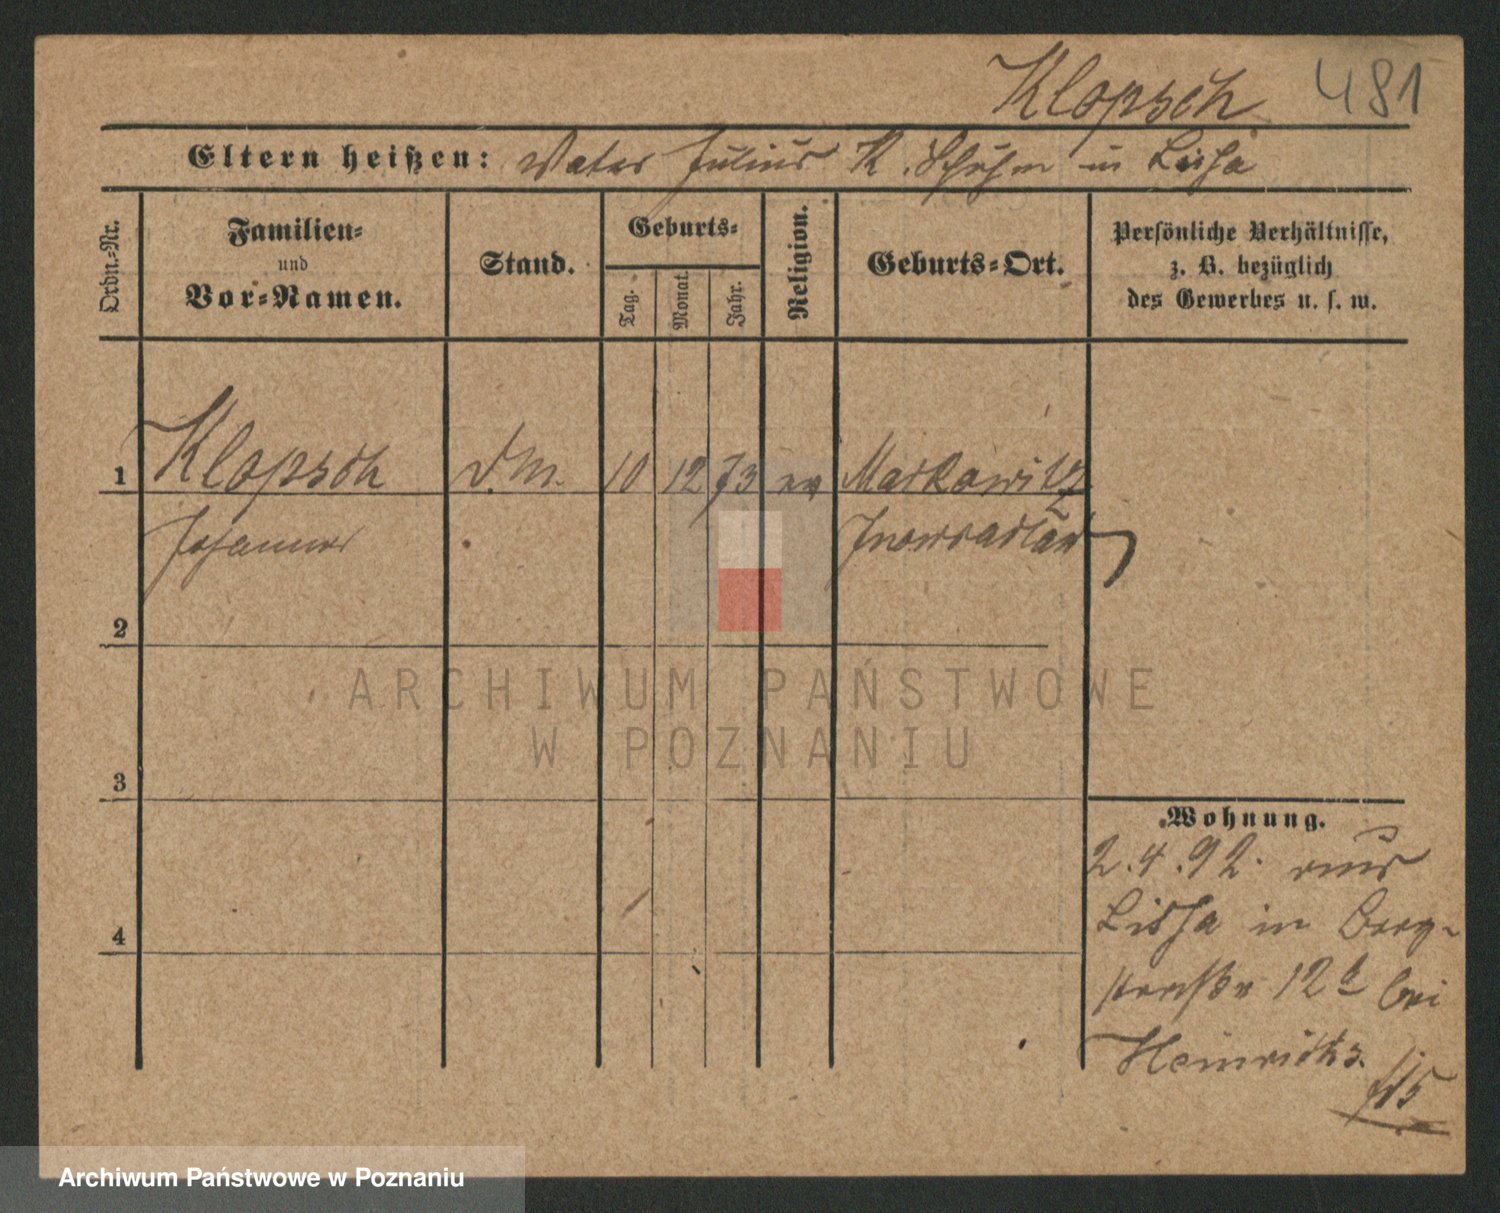 Klopsch 481
Eltern heißen: Vater Julius K. in Lissa
Ordn.-Nr.
Familien-
und
Vor-Namen.
Stand.
Geburts-
Tag.
Monat.
Jahr.
Religion.
Geburts-Ort.
Persönliche Verhältnisse,
z. B. bezüglich
des Gewerbes u. s. w.
1 Klopsch d.M. 10 12 73 ev Markowitz
Johannes
2
3
4
Wohnung.
2.4.92. aus
Lissa in Berg-
straße 12 bei
Heinrichs.
ARCHIWUM PAŃSTWOWE
W POZNANIU
Archiwum Państwowe w Poznaniu